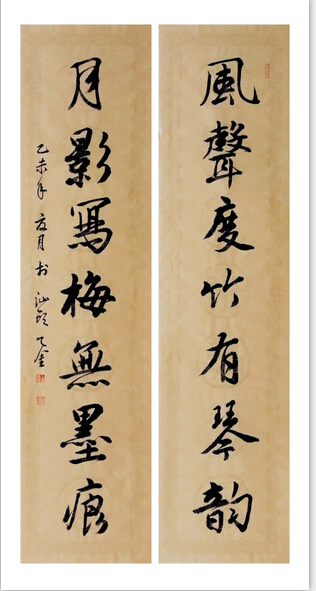 風聲度竹有琴韵
月影寫梅無墨痕
乙未年夏月於汕頭